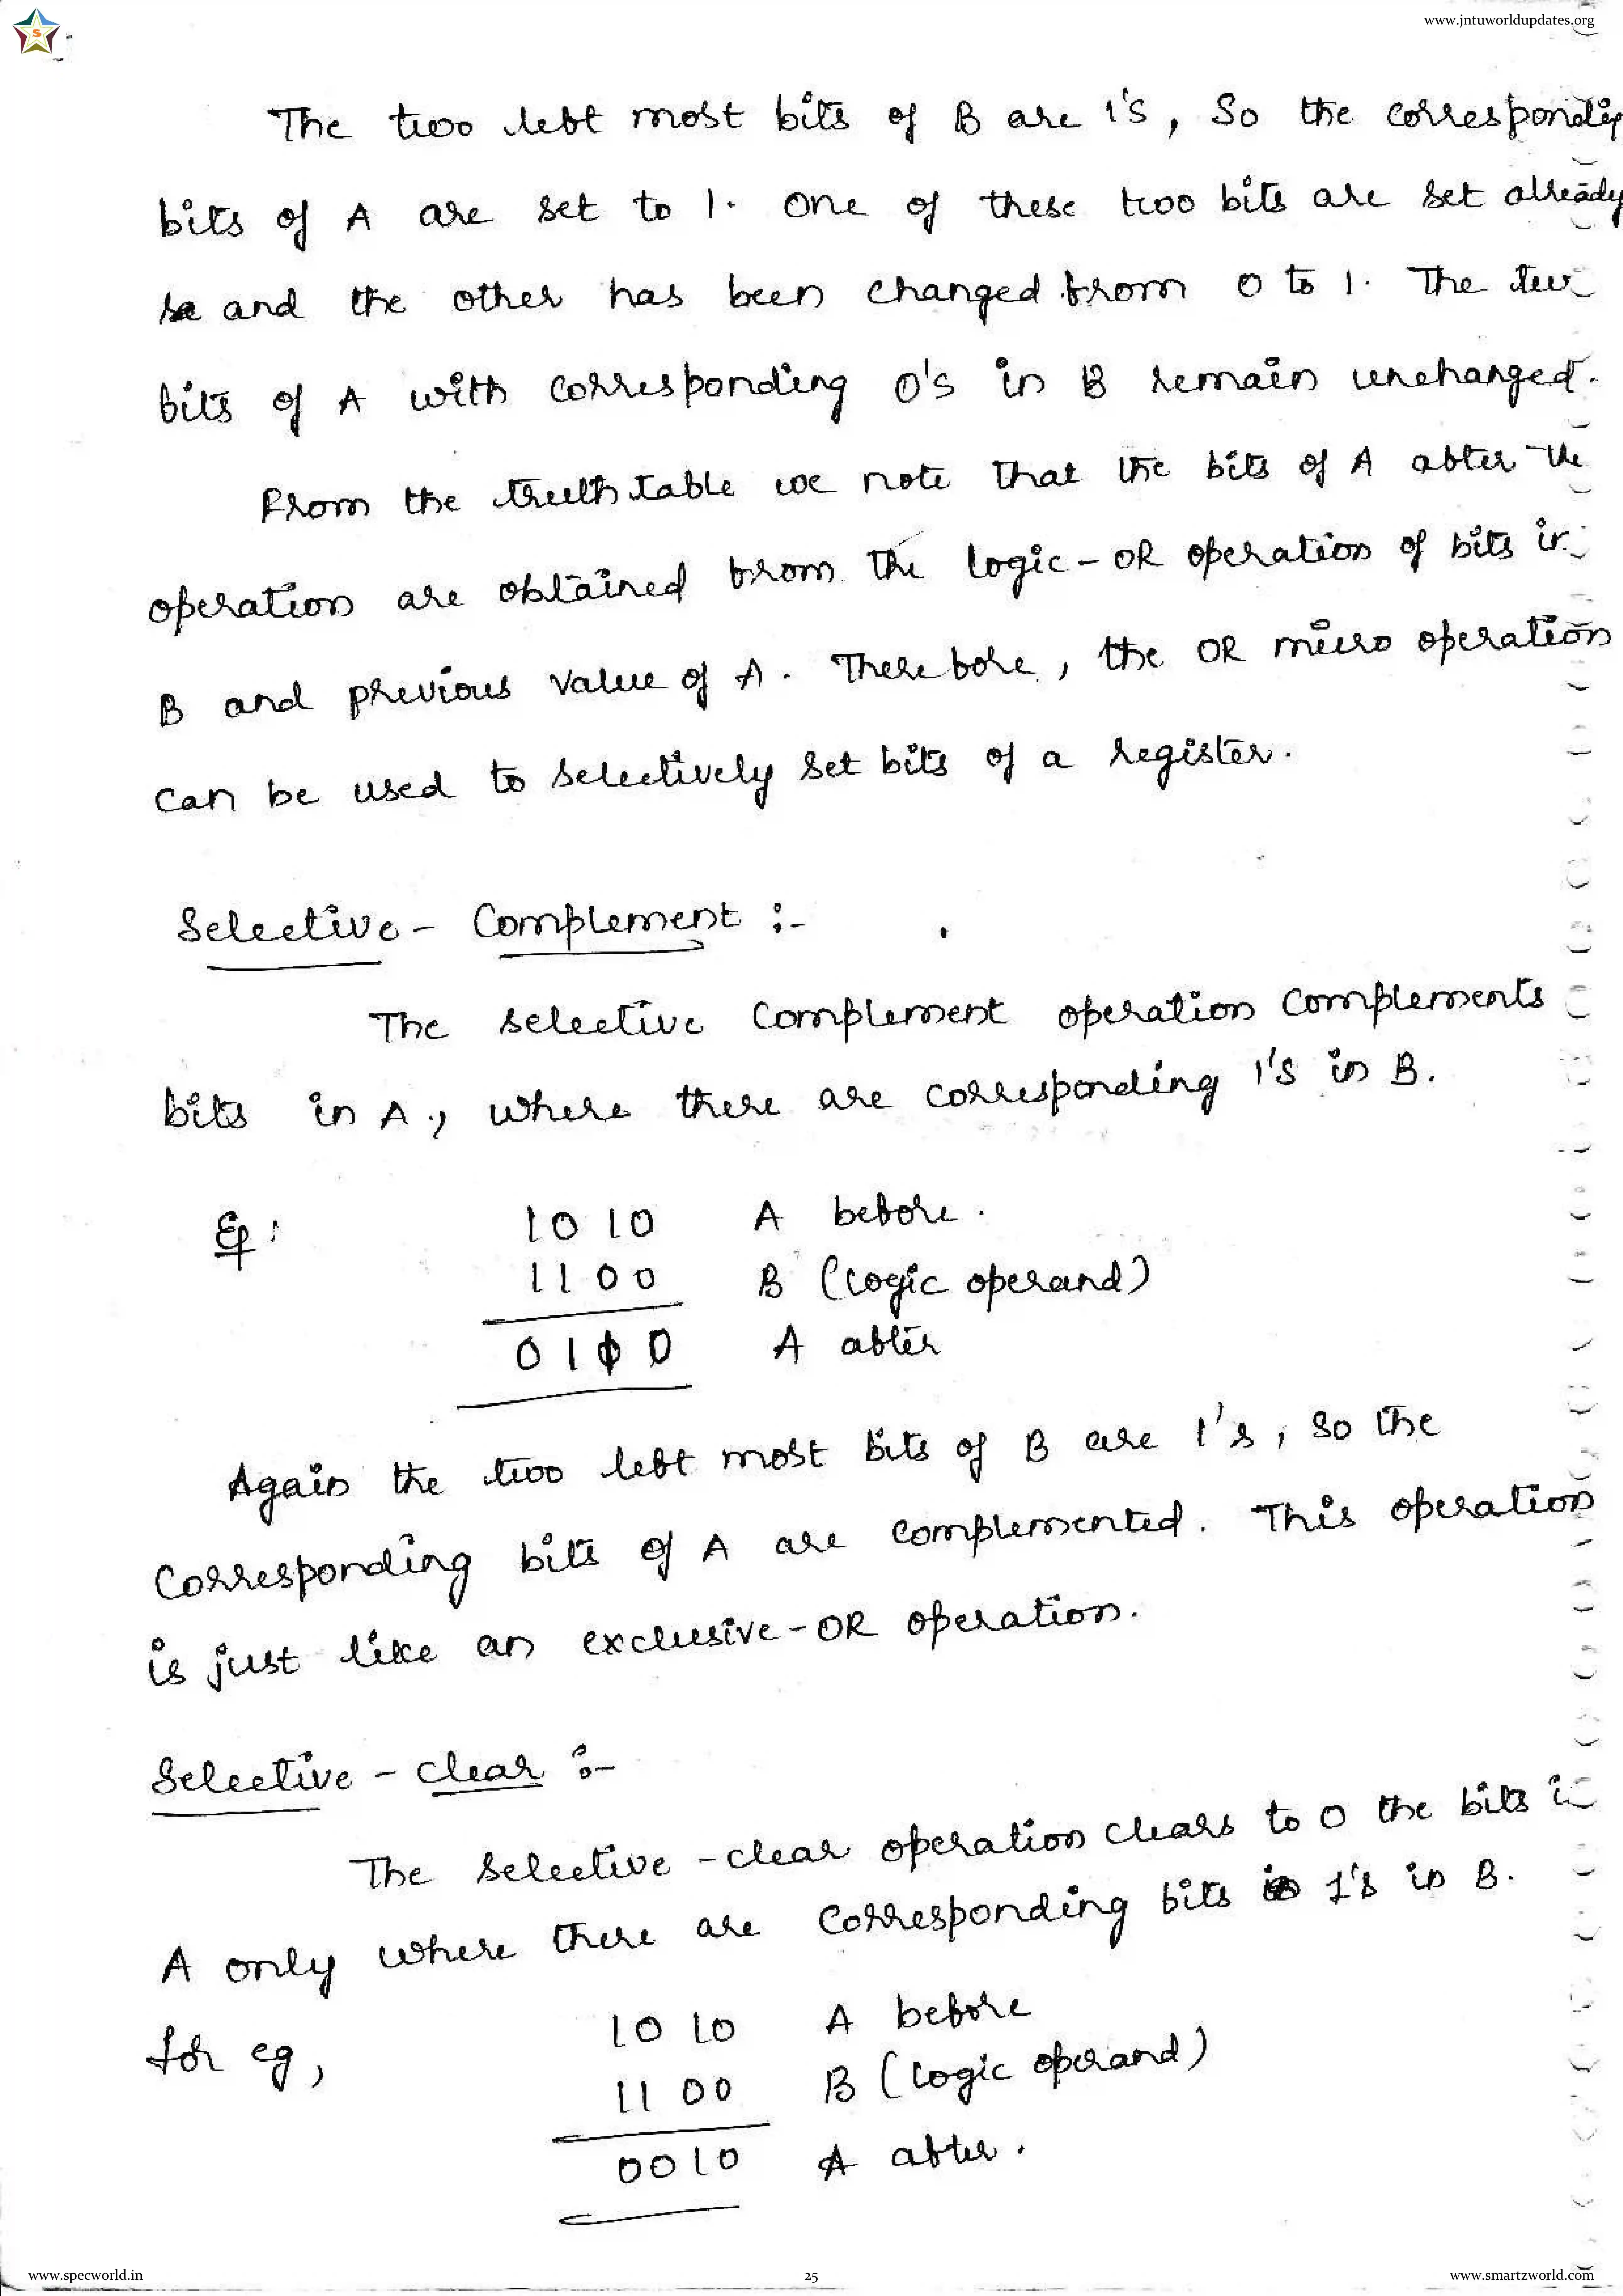 www.jntuworldupdates.org
S
The two left most bits of B are 1's, So the correspondig
bits of A are set to 1. One of these two bits are set already
and the other has been changed from 0 to 1. The two
bits of A with corresponding 0's in B remain unchanged.
From the truth table we note that the bits of A after the
operation are obtained from the logic-OR operation of bits in
B and previous value of A. Therefore, the OR micro operation
can be used to selectively set bits of a register.
Selective - Complement :-
The selective complement operation complements
bits in A, where there are corresponding 1's in B.
Eg: 1010 A before.
1100 B (logic operand)
01 0 A after
Again the two left most bits of B are 1's, so the
corresponding bits of A are complemented. This operation
is just like an exclusive-OR operation.
Selective - clear :-
The selective-clear operation clears to 0 the bits in
A only where there are corresponding bits 1's in B.
for eg, 1010 A before
1100 B (logic operand)
0010 A after.
www.specworld.in 25 www.smartzworld.com